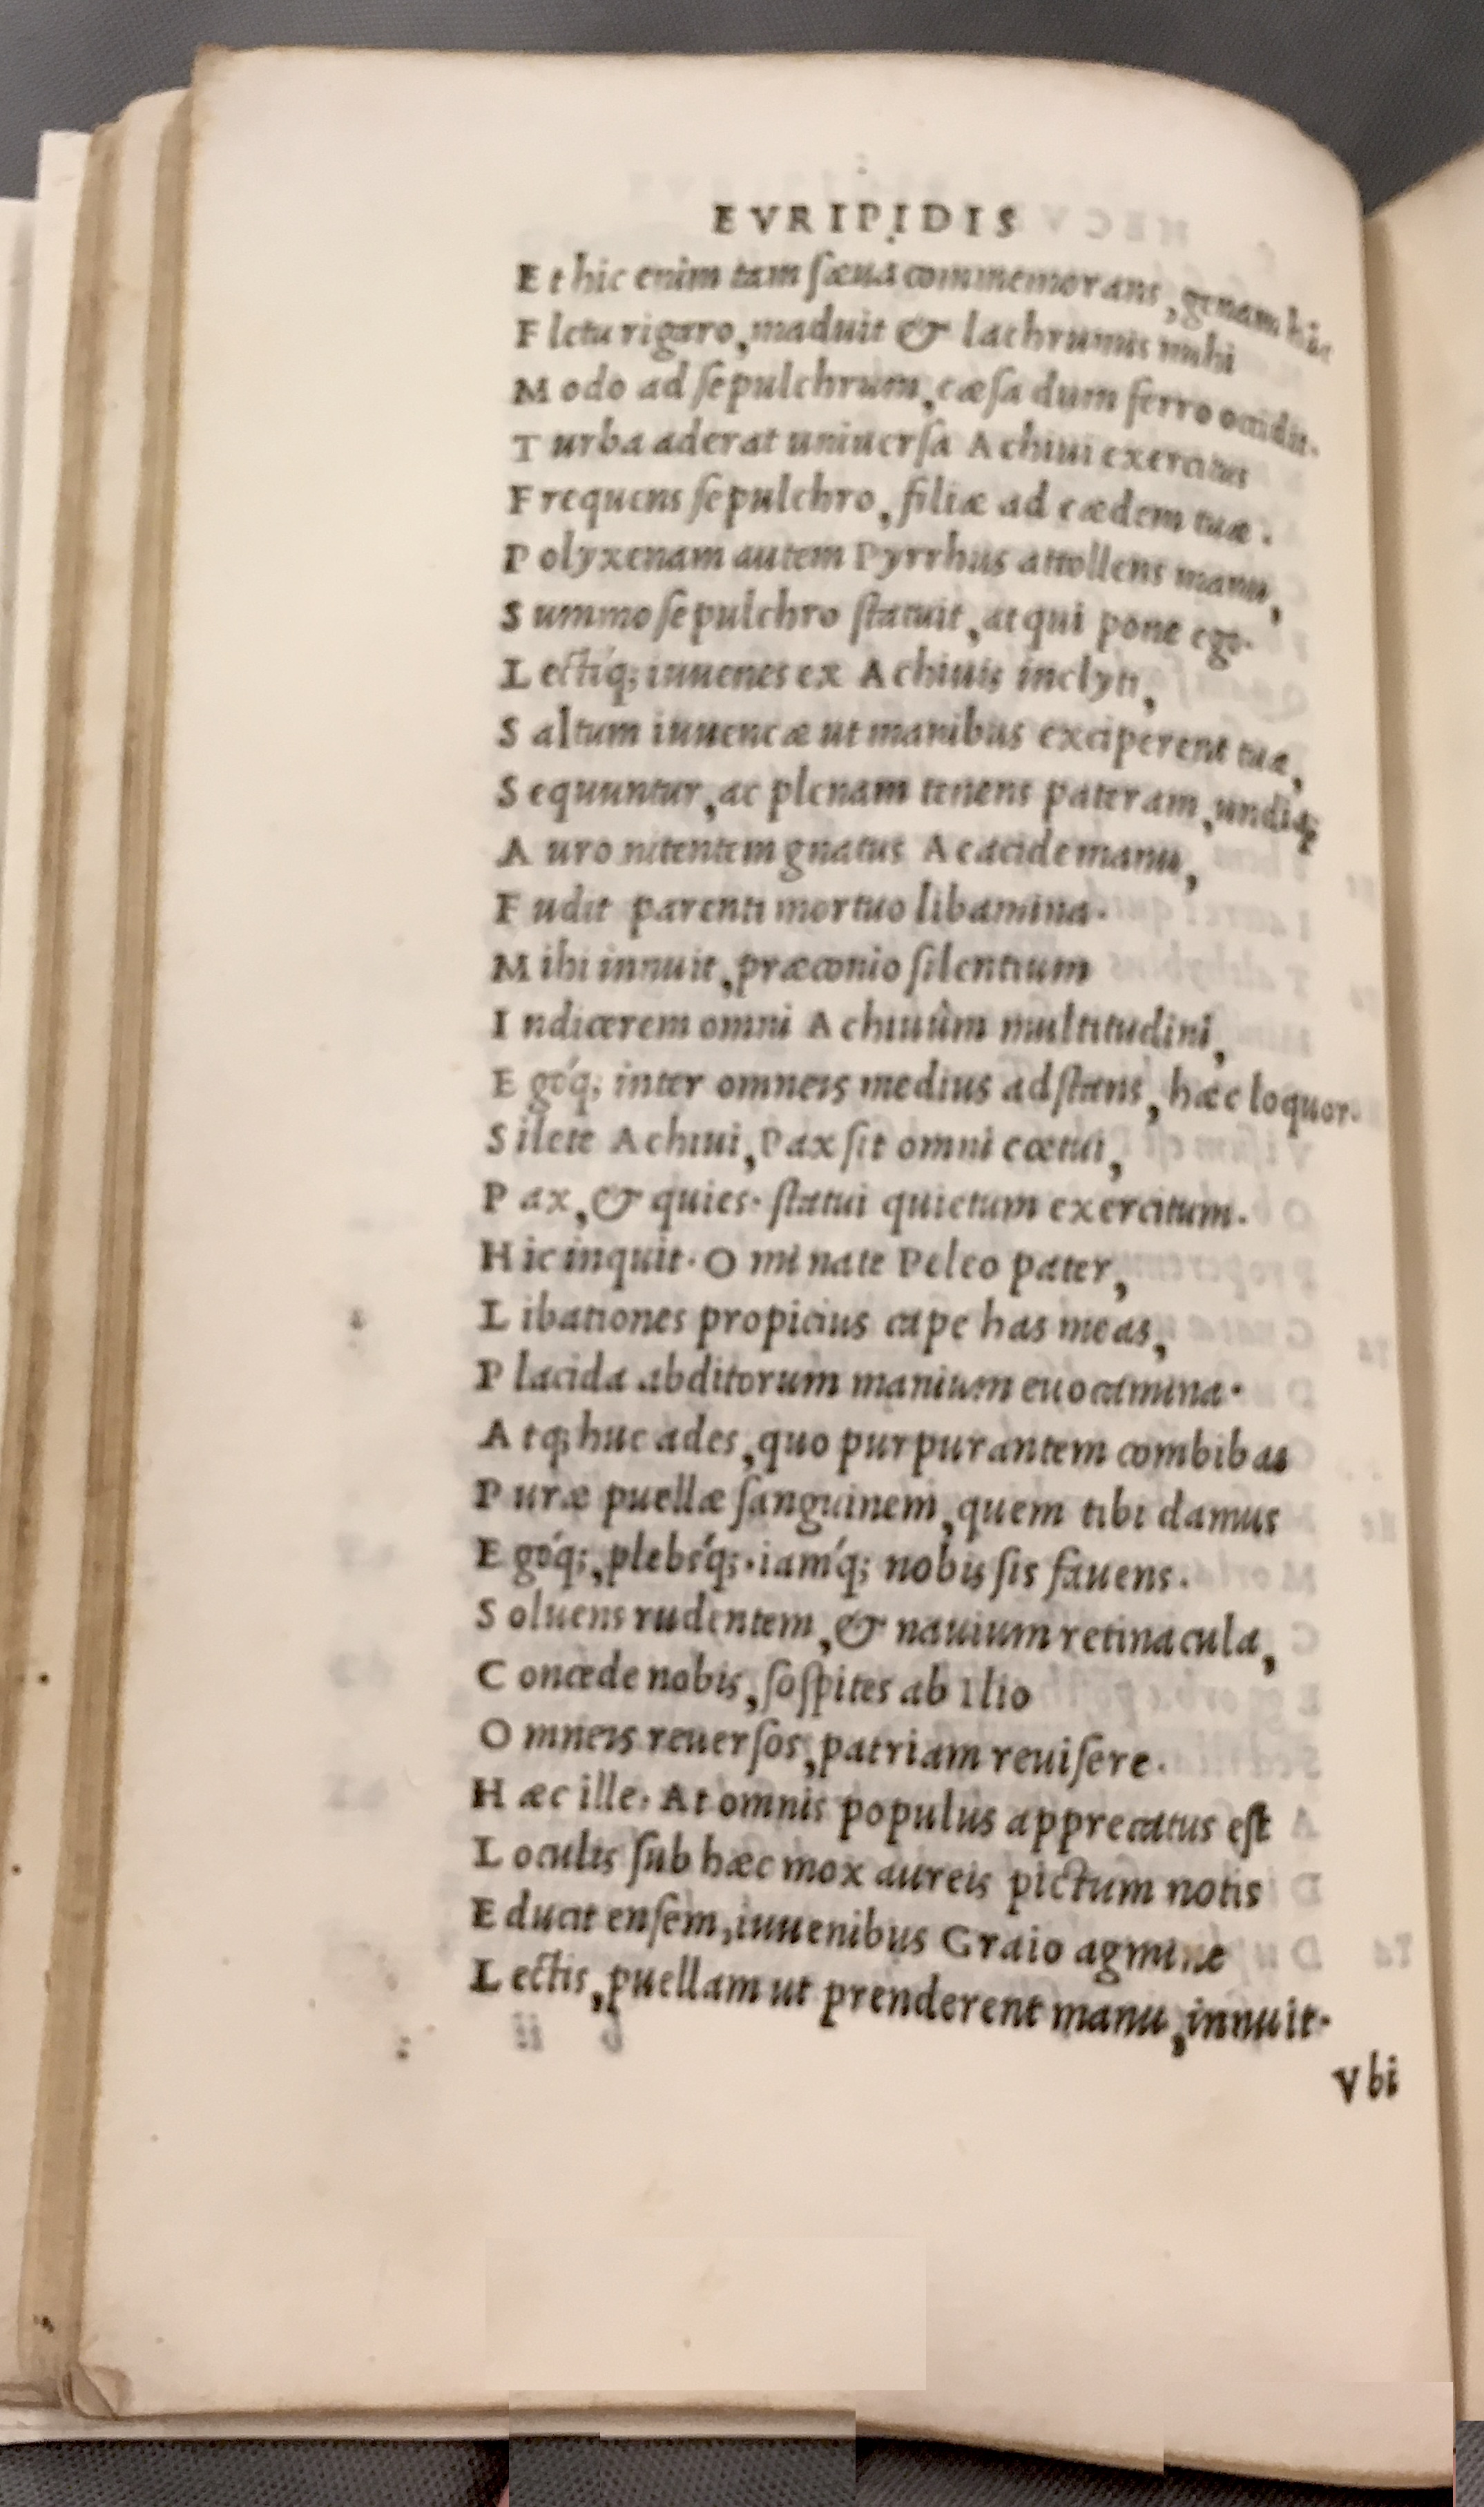 EVRIPIDIS
Et hic enim tam ſæua commemorans, genam hic
Fletu rigaro, maduit & lachrumis mihi
Modo ad ſepulchrum, cæſa dum ferro occidit.
Turba aderat uniuerſa Achiui exercitus
Frequens ſepulchro, filiæ ad cædem tuæ.
Polyxenam autem Pyrrhus attollens manu,
Summo ſepulchro ſtatuit, at qui pone ego.
Lectíq; iuuenes ex Achiuis inclyti,
Saltum iuuencæ ut manibus exciperent tuæ,
Sequuntur, ac plenam tenens pateram, undiq;
Auro nitentem gnatus Aeacide manu,
Fudit parenti mortuo libamina.
Mihi innuit, præconio ſilentium
Indicerem omni Achiuûm multitudini,
Egóq; inter omneis medius adſtans, hæc loquor.
Silete Achiui, Pax ſit omni cœtui,
Pax, & quies. ſtatui quietum exercitum.
Hic inquit. O mi nate Peleo pater,
Libationes propicius cape has meas,
Placida abditorum manium euocamina.
Atq; huc ades, quo purpurantem combibas
Puræ puellæ ſanguinem, quem tibi damus
Egóq;, plebśq;. iamq́; nobis ſis fauens.
Soluens rudentem, & nauium retinacula,
Concede nobis, ſoſpites ab Ilio
Omneis reuerſos, patriam reuiſere.
Hæc ille. At omnis populus apprecatus eſt
Loculis ſub hæc mox aureis pictum notis
Educit enſem, iuuenibus Graio agmine
Lectis, puellam ut prenderent manu, innuit.
Vbi